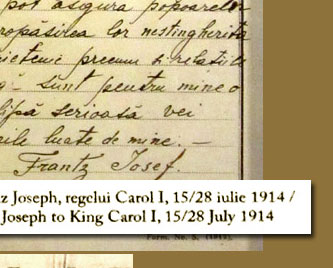 pot asigura popoarelor
propășirea lor nestingherită
prietenii precum și relațiile
sunt pentru mine o
clipă serioasă vei
luate de mine. —
Frantz Iosef.
z Joseph, regelui Carol I, 15/28 iulie 1914 /
Joseph to King Carol I, 15/28 July 1914